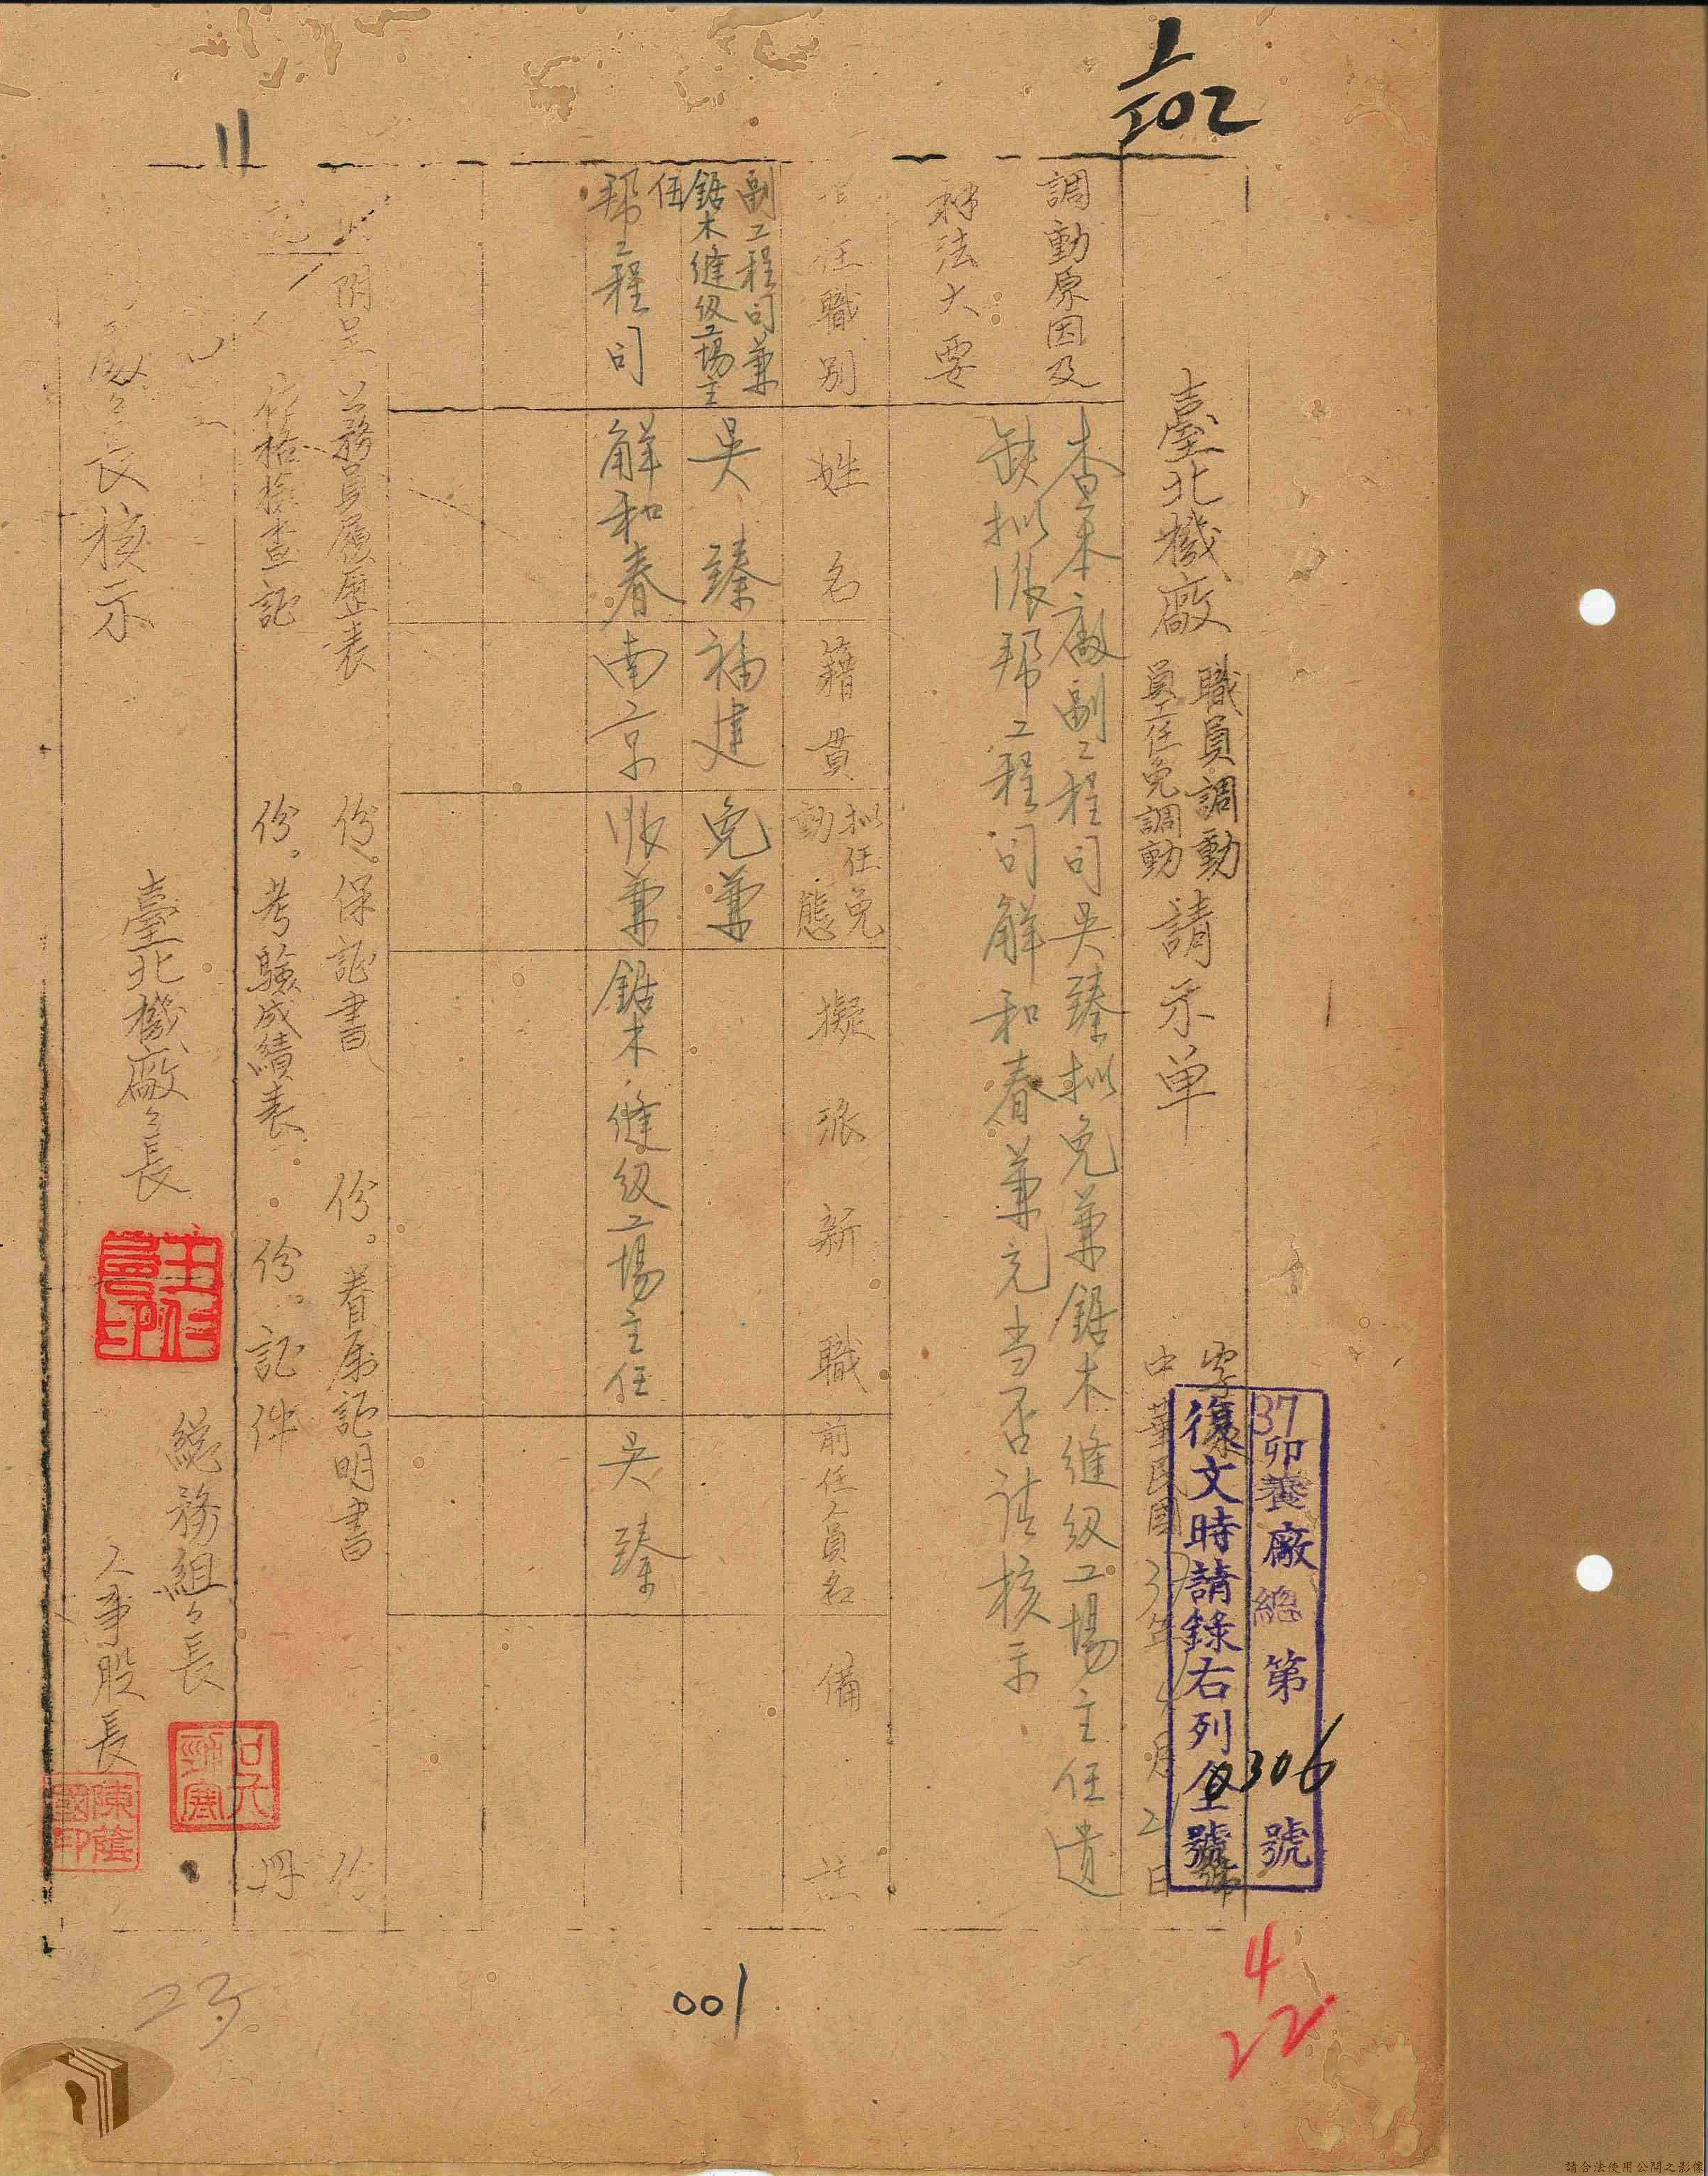 1/502
11
臺北機廠
職員調動
員工任免調動
請示单
字第
號
中華民國37年4月21日
37卯養廠總第0306號
復文時請錄右列全號
4/22
調動原因及
辦法大要
查本廠副工程司吴臻拟免兼鋸木縫级工場主任遺
缺拟派帮工程司解和春兼充当否请核示
任職別
姓名
籍貫
拟任免
動態
擬派新職
前任人員名
備註
副工程司兼
鋸木縫级工場主
任
吴臻
福建
免兼
帮工程司
解和春
南京
派兼
鋸木縫级工場主任
吴臻
附呈
公務員履歷表 份。保证書 份。眷属証明書 份
資格検查証 份。考驗成績表 份。証件 冊
廠長核示
臺北機廠廠長
總務組組長
人事股長
陳蔭國印
23
001
請合法使用公開之影像